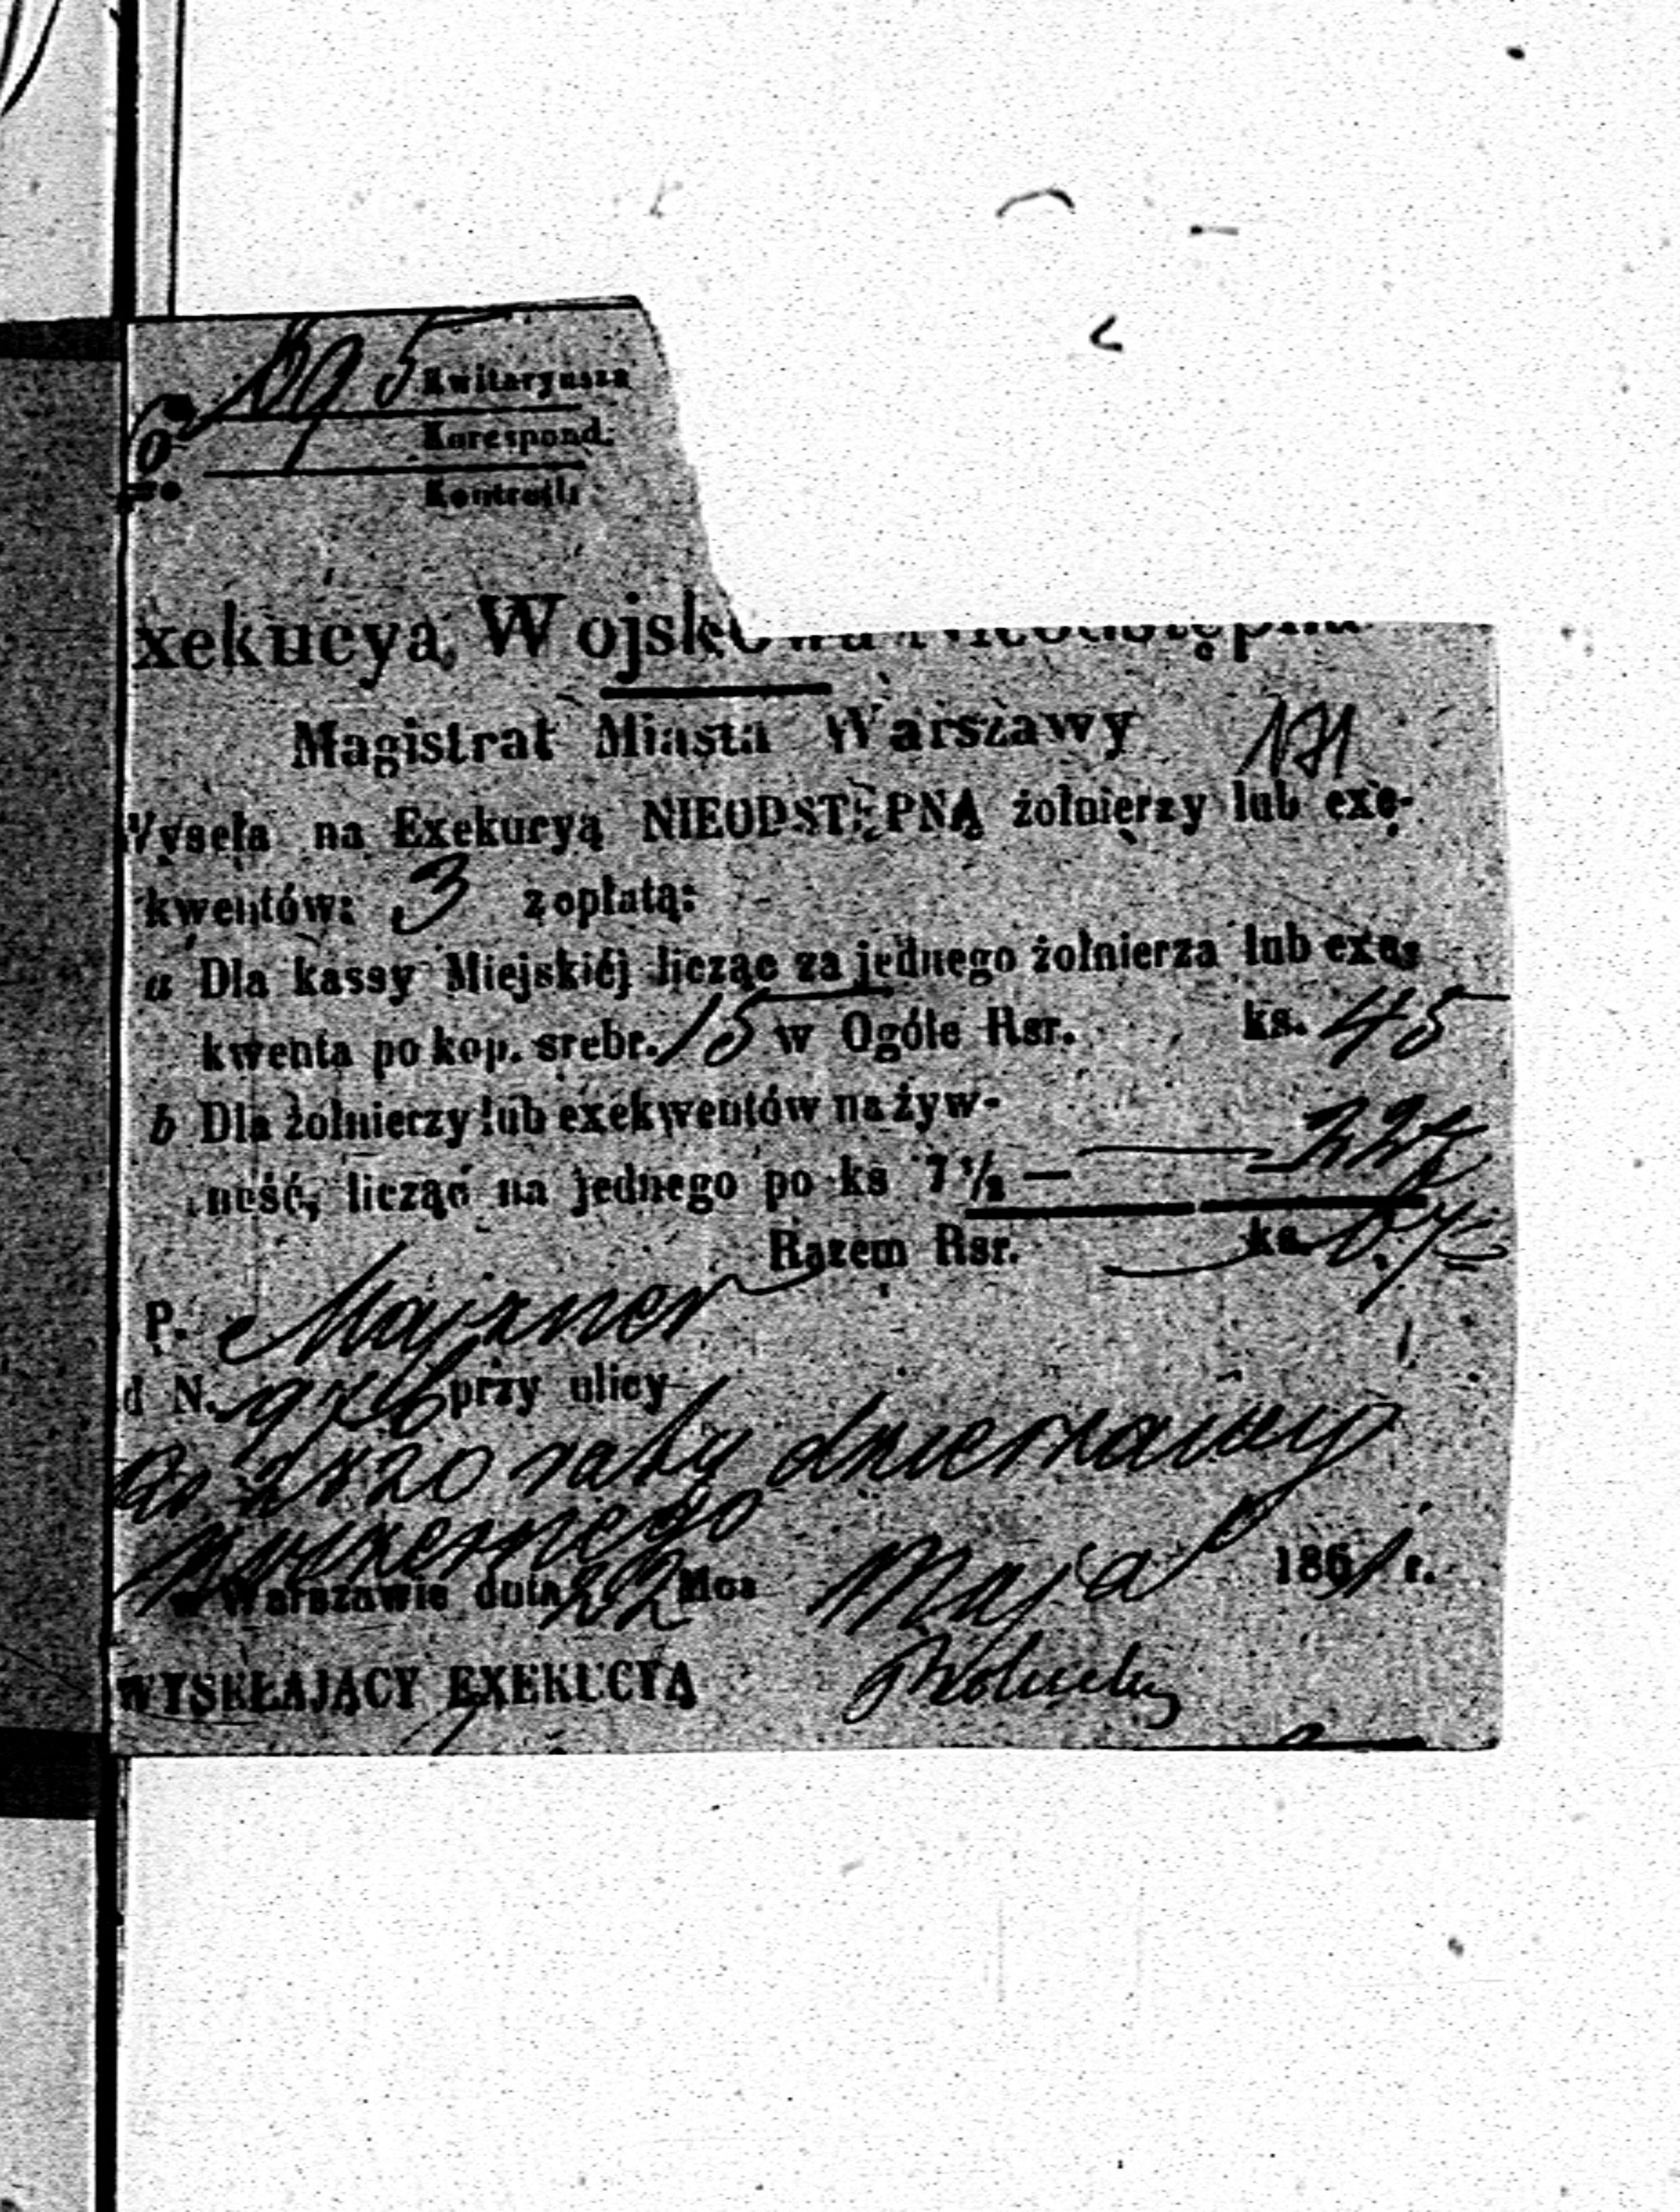 5 Kwitaryusza
Korespond:
Kontrolli
xekucya Wojskowa Nieodstępna
Magistrat Miasta Warszawy
171
Wyseła na Exekucyą NIEODSTĘPNĄ żołnierzy lub exe-
kwentów: 3 z opłatą:
a Dla kassy Miejskiéj licząc za jednego żołnierza lub exe-
kwenta po kop. srebr. 15 w Ogóle Rsr. ks. 45
b Dla żołnierzy lub exekwentów na żyw-
ność, licząc na jednego po ks 7 ½ — 22½
Razem Rsr. ks. 67½
P. Majzner
d N. przy ulicy
raty dzierżawy
w Warszawie dnia 22 Mca Maja 1861 r.
WYSEŁAJĄCY EXEKUCYĄ